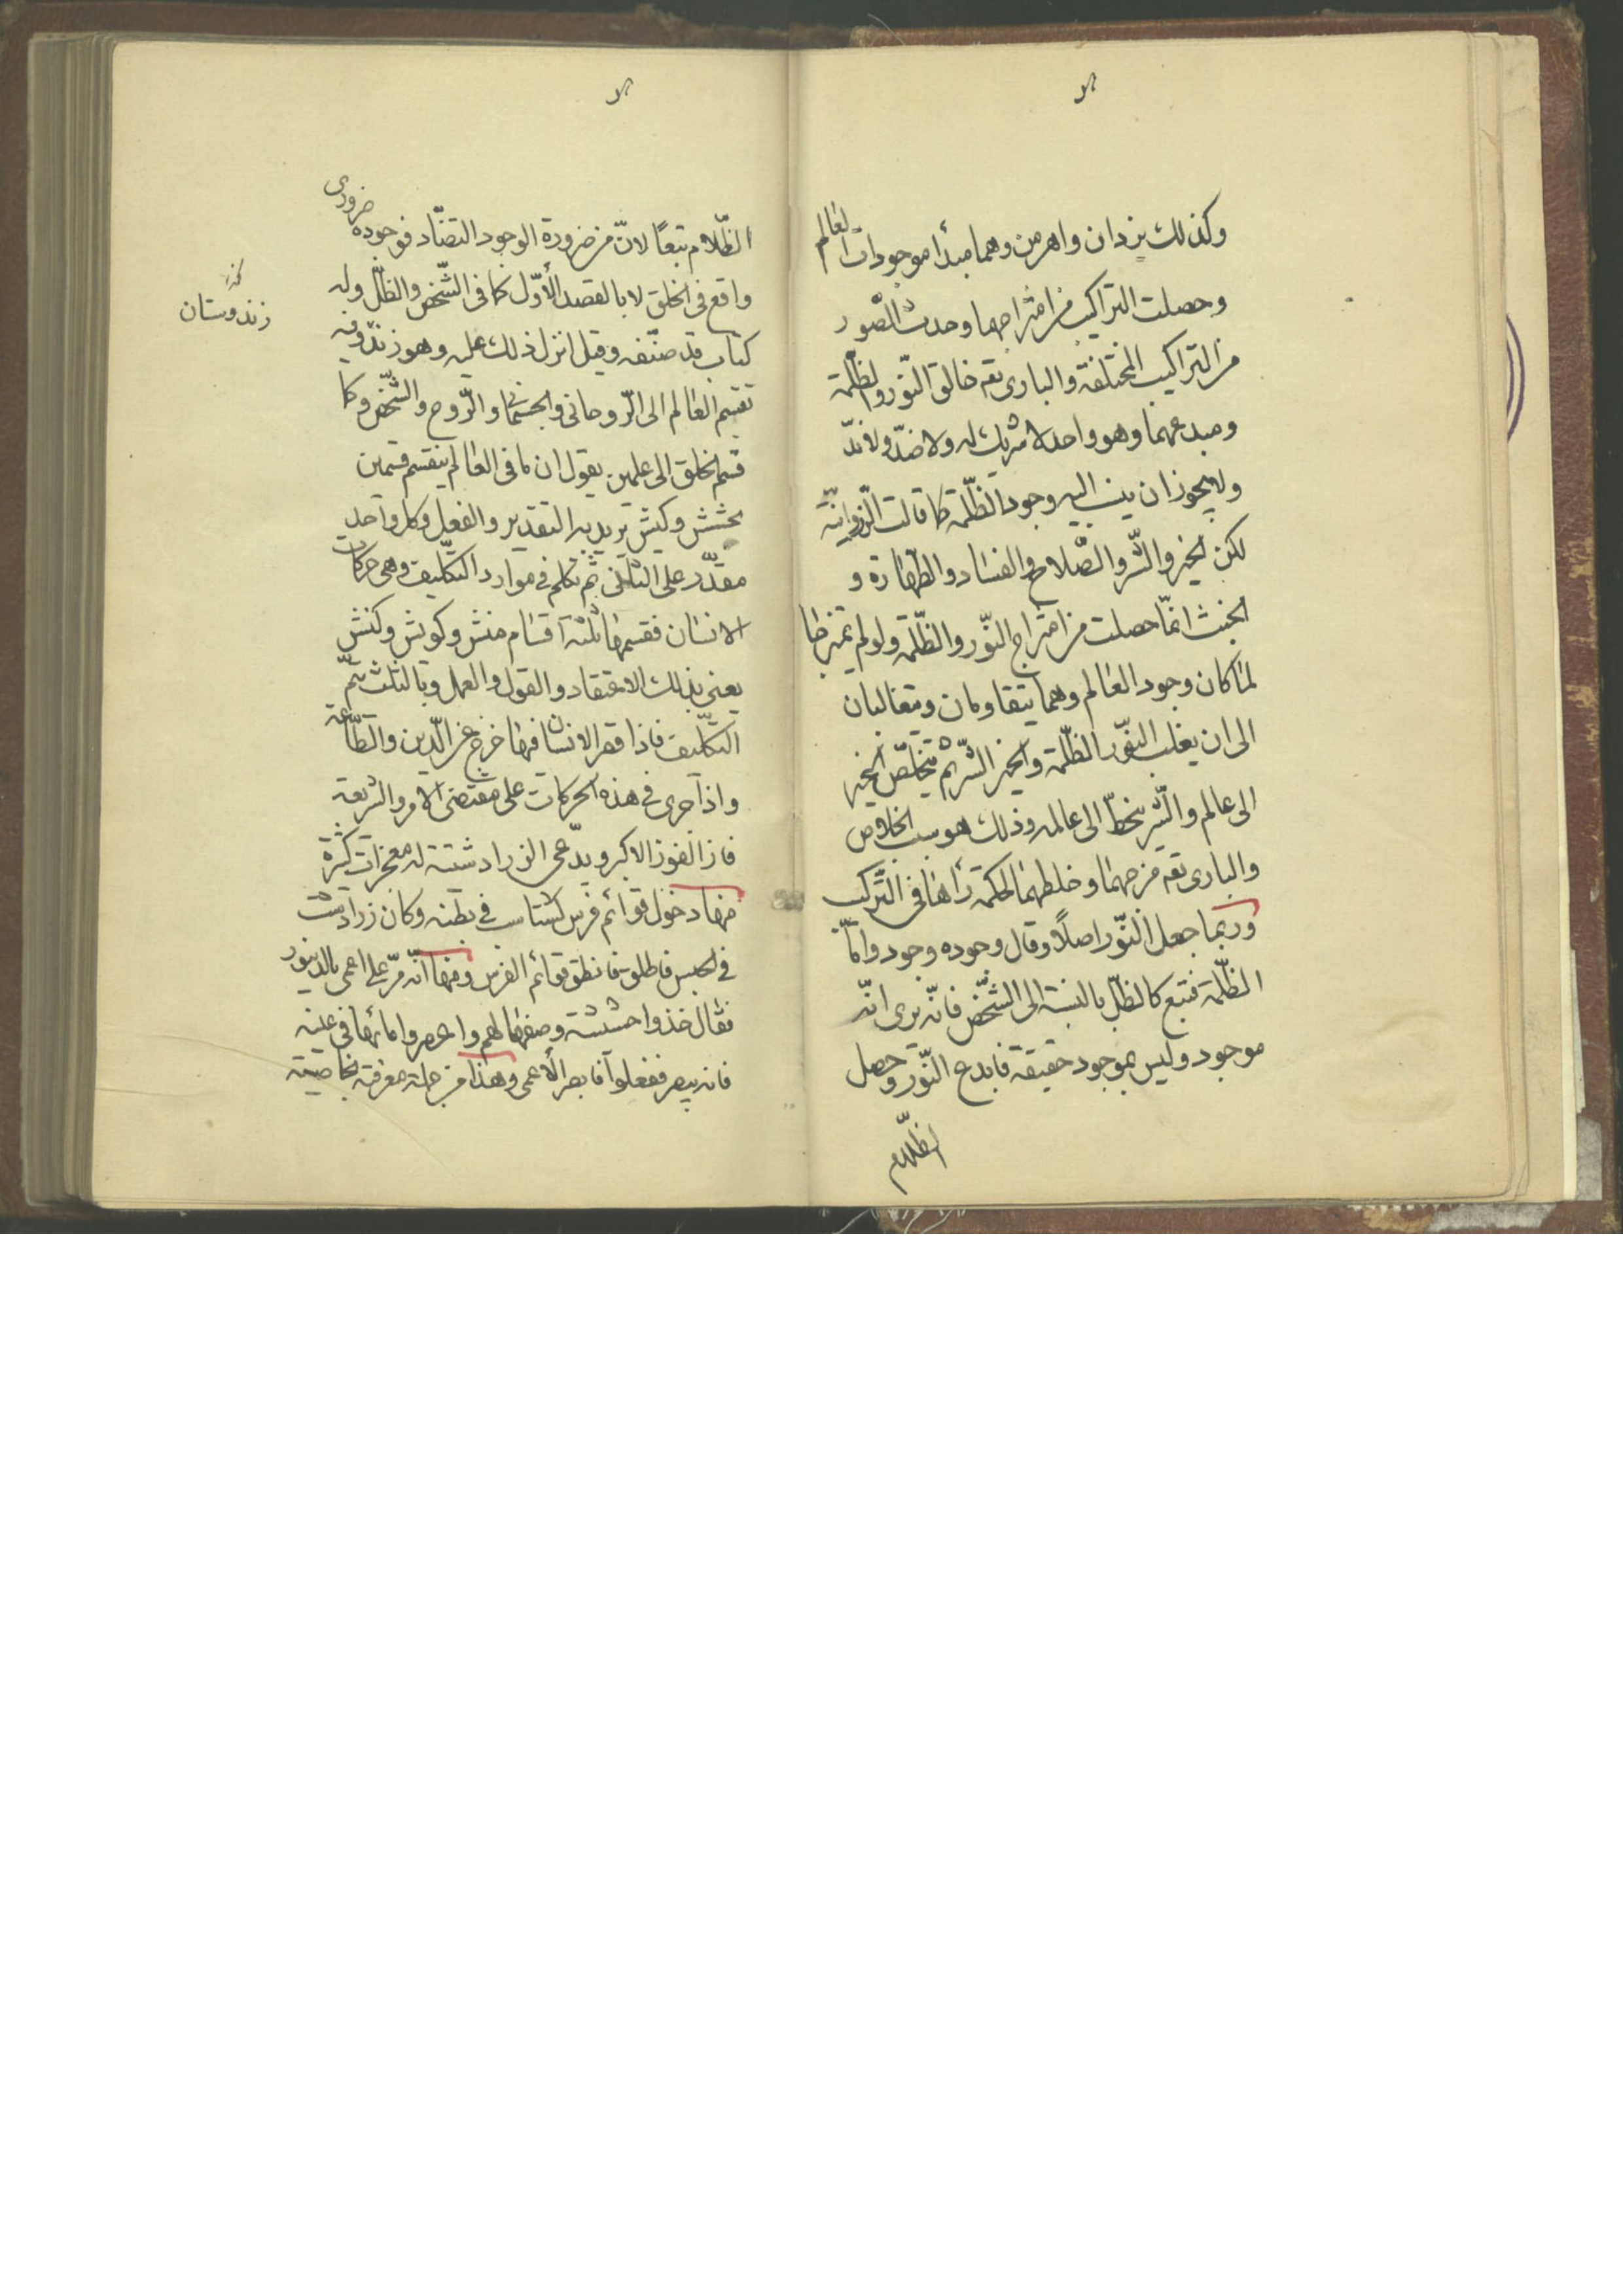 وكذلك يزدان واهرمن وهما مبدأ موجودات العالم
وحصلت التراكيب من امتزاجهما وحدثت الصّور
من التراكيب المختلفة والبارى تعه خالق النّور والظّلمة
ومبدعهما وهو واحد لا شريك له ولا ضدّ ولا ندّ
ولا يجوز ان ينسب اليه وجود الظّلمة كما قالت الزّروانيّة
لكن الخير والشّر والصّلاح والفساد والطهارة و
الخبث انّما حصلت من امتزاج النّور والظّلمة ولو لم يمتزجا
لما كان وجود العالم وهما يتقاومان ويتغالبان
الى ان يغلب النّور الظّلمة والخير الشّر ثم يتخلّص الخير
الى عالم والشّر ينحطّ الى عالمه وذلك هو سبب الخلاص
والبارى تعه مزجهما وخلطهما لحكمة رأها فى التّركيب
وربما جعل النّور اصلاً وقال وجوده وجود وامّا
الظّلمة فتبع كالظّلّ بالنسبة الى الشّخص فانّه يرى انّه
موجود وليس بموجود حقيقة فابدع النّور وحصل
الظّلام
الظّلام تبعًا لانّ من ضرورة الوجود التضّاد فوجوده ضرورى
واقع فى الخلق لا بالقصد الأوّل كما فى الشّخص والظّلّ وله
كتاب قد صنّفه وقيل انزل ذلك عليه وهو زند وفيه
زند وستان
تقسيم العالم الى الرّوحانى والجسمانى والرّوح والشّخص وكما
قسم الخلق الى علمين يقول ان ما فى العالم ينقسم قسمين
بخشش وكنش يريد به التقدير والفعل وكل واحد
مقدّر على الثانى ثم تكلم فى موارد التكليف وهى حركات
الانسان فقسمها ثلثة اقسام منش وكويش وكنش
يعنى بذلك الاعتقاد والقول والعمل وبالثلث يتمّ
التكليف فاذا قصر الانسان فيها خرج عن الدّين والطّاعة
واذا جرى فى هذه الحركات على مقتضى الامر والشريعة
فاز الفوز الاكبر ويدّعى الزرادشتية له معجزات كثيرة
منها دخول قوائم فرس كشتاسب فى بطنه وكان زرادشت
فى الحبس فاطلق فانطلق قوائم الفرس ومنها انّه مرّ على اعمى بالدينور
فقال خذوا حشيشة وصفها لهم واعصروا مائها فى عينه
فانه يبصر ففعلوا فابصر الأعمى وهذا من جملة معرفته بخاصيّة